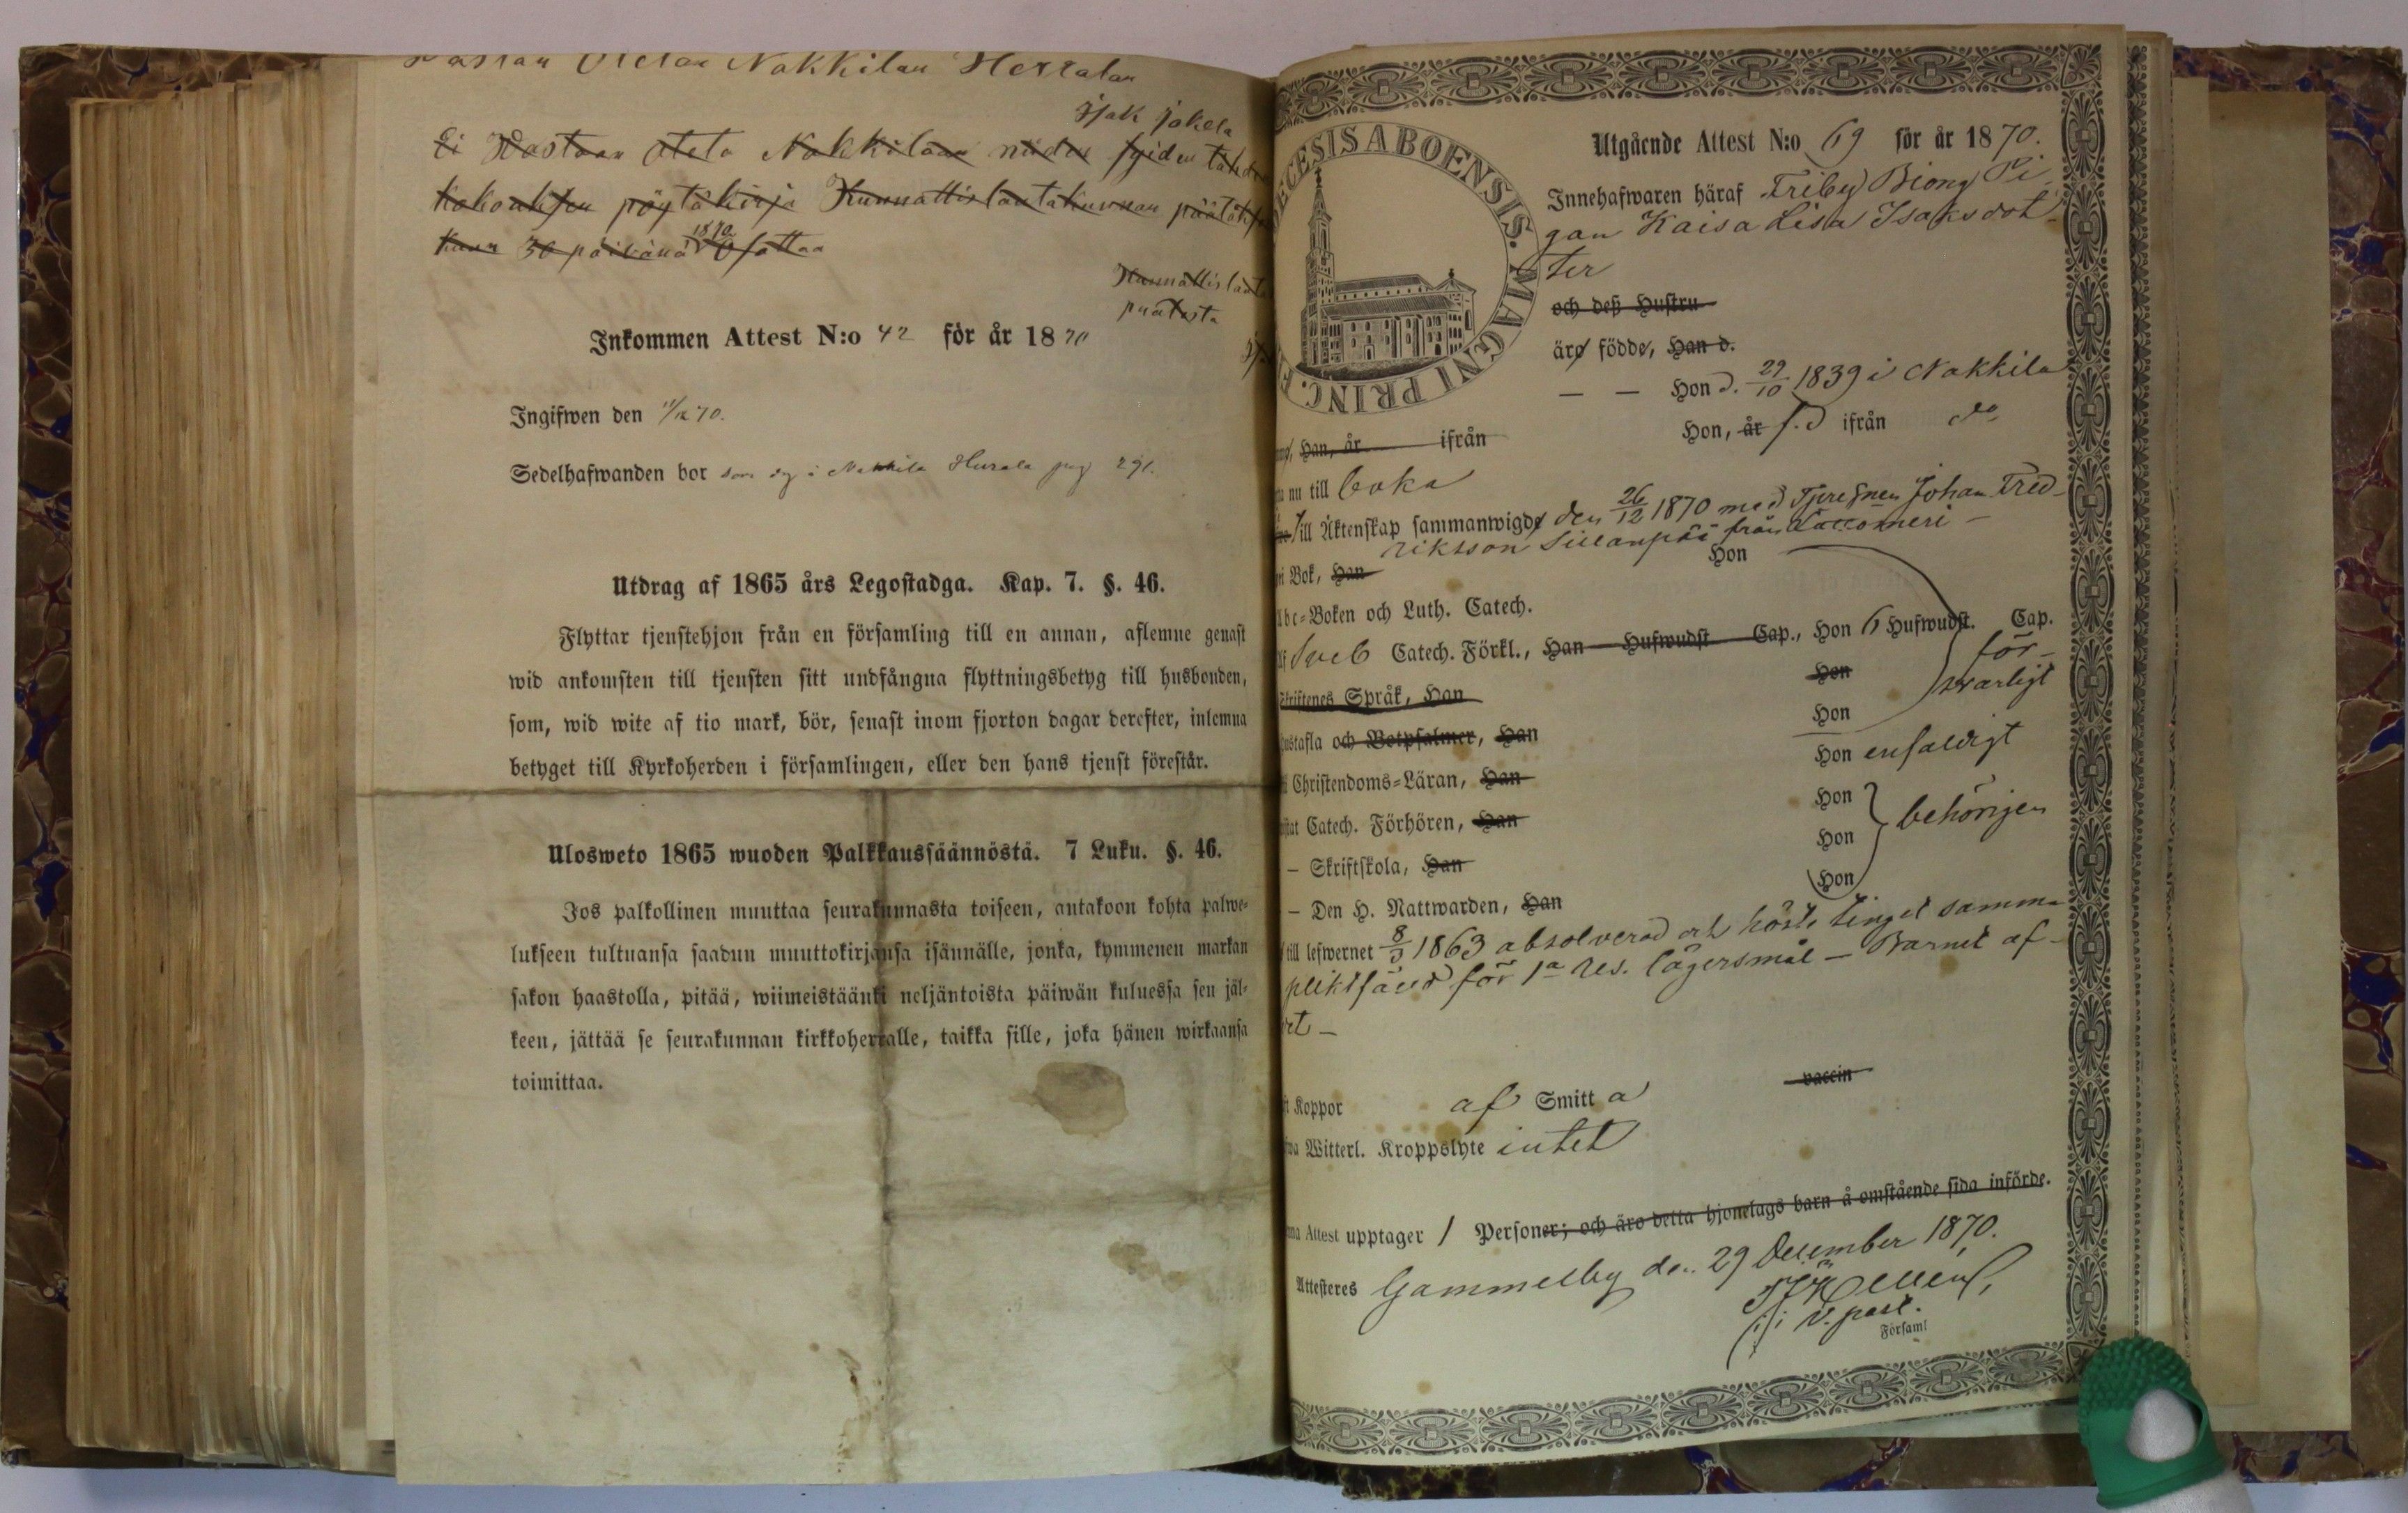 Wastan Otetan Nakkilan Herralan
Isak Jokela
Ei Wastaan oteta Nakkilaan
kokouksen pöytäkirja Kunnallislautakunnan
kuun 30 päivänä 1870
Inkommen Attest N:o 42 för år 1870
Ingifwen den 11/12 70.
Sedelhafwanden bor som dg i Nakkila pag 291.
Utdrag af 1865 års Legostadga. Kap. 7. §. 46.
Flyttar tjenstehjon från en församling till en annan, aflemne genast
wid ankomsten till tjensten sitt undfångna flyttningsbetyg till husbonden,
som, wid wite af tio mark, bör, senast inom fjorton dagar derefter, inlemna
betyget till Kyrkoherden i församlingen, eller den hans tjenst förestår.
Ulosweto 1865 wuoden Palkkaussäännöstä. 7 Luku. §. 46.
Jos palkollinen muuttaa seurakunnasta toiseen, antakoon kohta palwe-
lukseen tultuansa saadun muuttokirjansa isännälle, jonka, kymmenen markan
sakon haastolla, pitää, wiimeistäänki neljäntoista päiwän kuluessa sen jäl-
keen, jättää se seurakunnan kirkkoherralle, taikka sille, joka hänen wirkaansa
toimittaa.
ECESIS ABOENSIS. MAGNI PRINC. F
Utgående Attest N:o 69 för år 1870.
Innehafwaren häraf Friby Biony Pi-
gan Kaisa Lisa Isaksdot-
ter
och deß Hustru
äro födde, Han d.
— — Hon d. 29/10 1839 i Nakkila
Han, år ifrån Hon, år f.d ifrån do
nu till boka
till Äktenskap sammanwigde den 26/12 1870 med Johan Fred-
riksson Sillanpää från Lattomeri —
i Bok, Han Hon
Abc-Boken och Luth. Catech.
Sveb Catech. Förkl., Han Hufwudst. Cap., Hon 6 Hufwudst. Cap.
för-
svarligt
Skriftenes Språk, Han Hon
Hustafla och Botpsalmer, Han Hon
Christendoms-Läran, Han Hon enfaldigt
Catech. Förhören, Han Hon
behörigen
– Skriftskola, Han Hon
– Den H. Nattwarden, Han Hon
till lefwernet 8/3 1863 absolverad och höste tinget samma
pliktfäld för 1a res. lägersmål — Barnet af-
—
Koppor af Smitta vaccin
Witterl. Kroppslyte intet
Attest upptager 1 Personer; och äro detta hjonelags barn å omstående sida införde.
Attesteres Gammelby den 29 December 1870.
v. past.
Församl